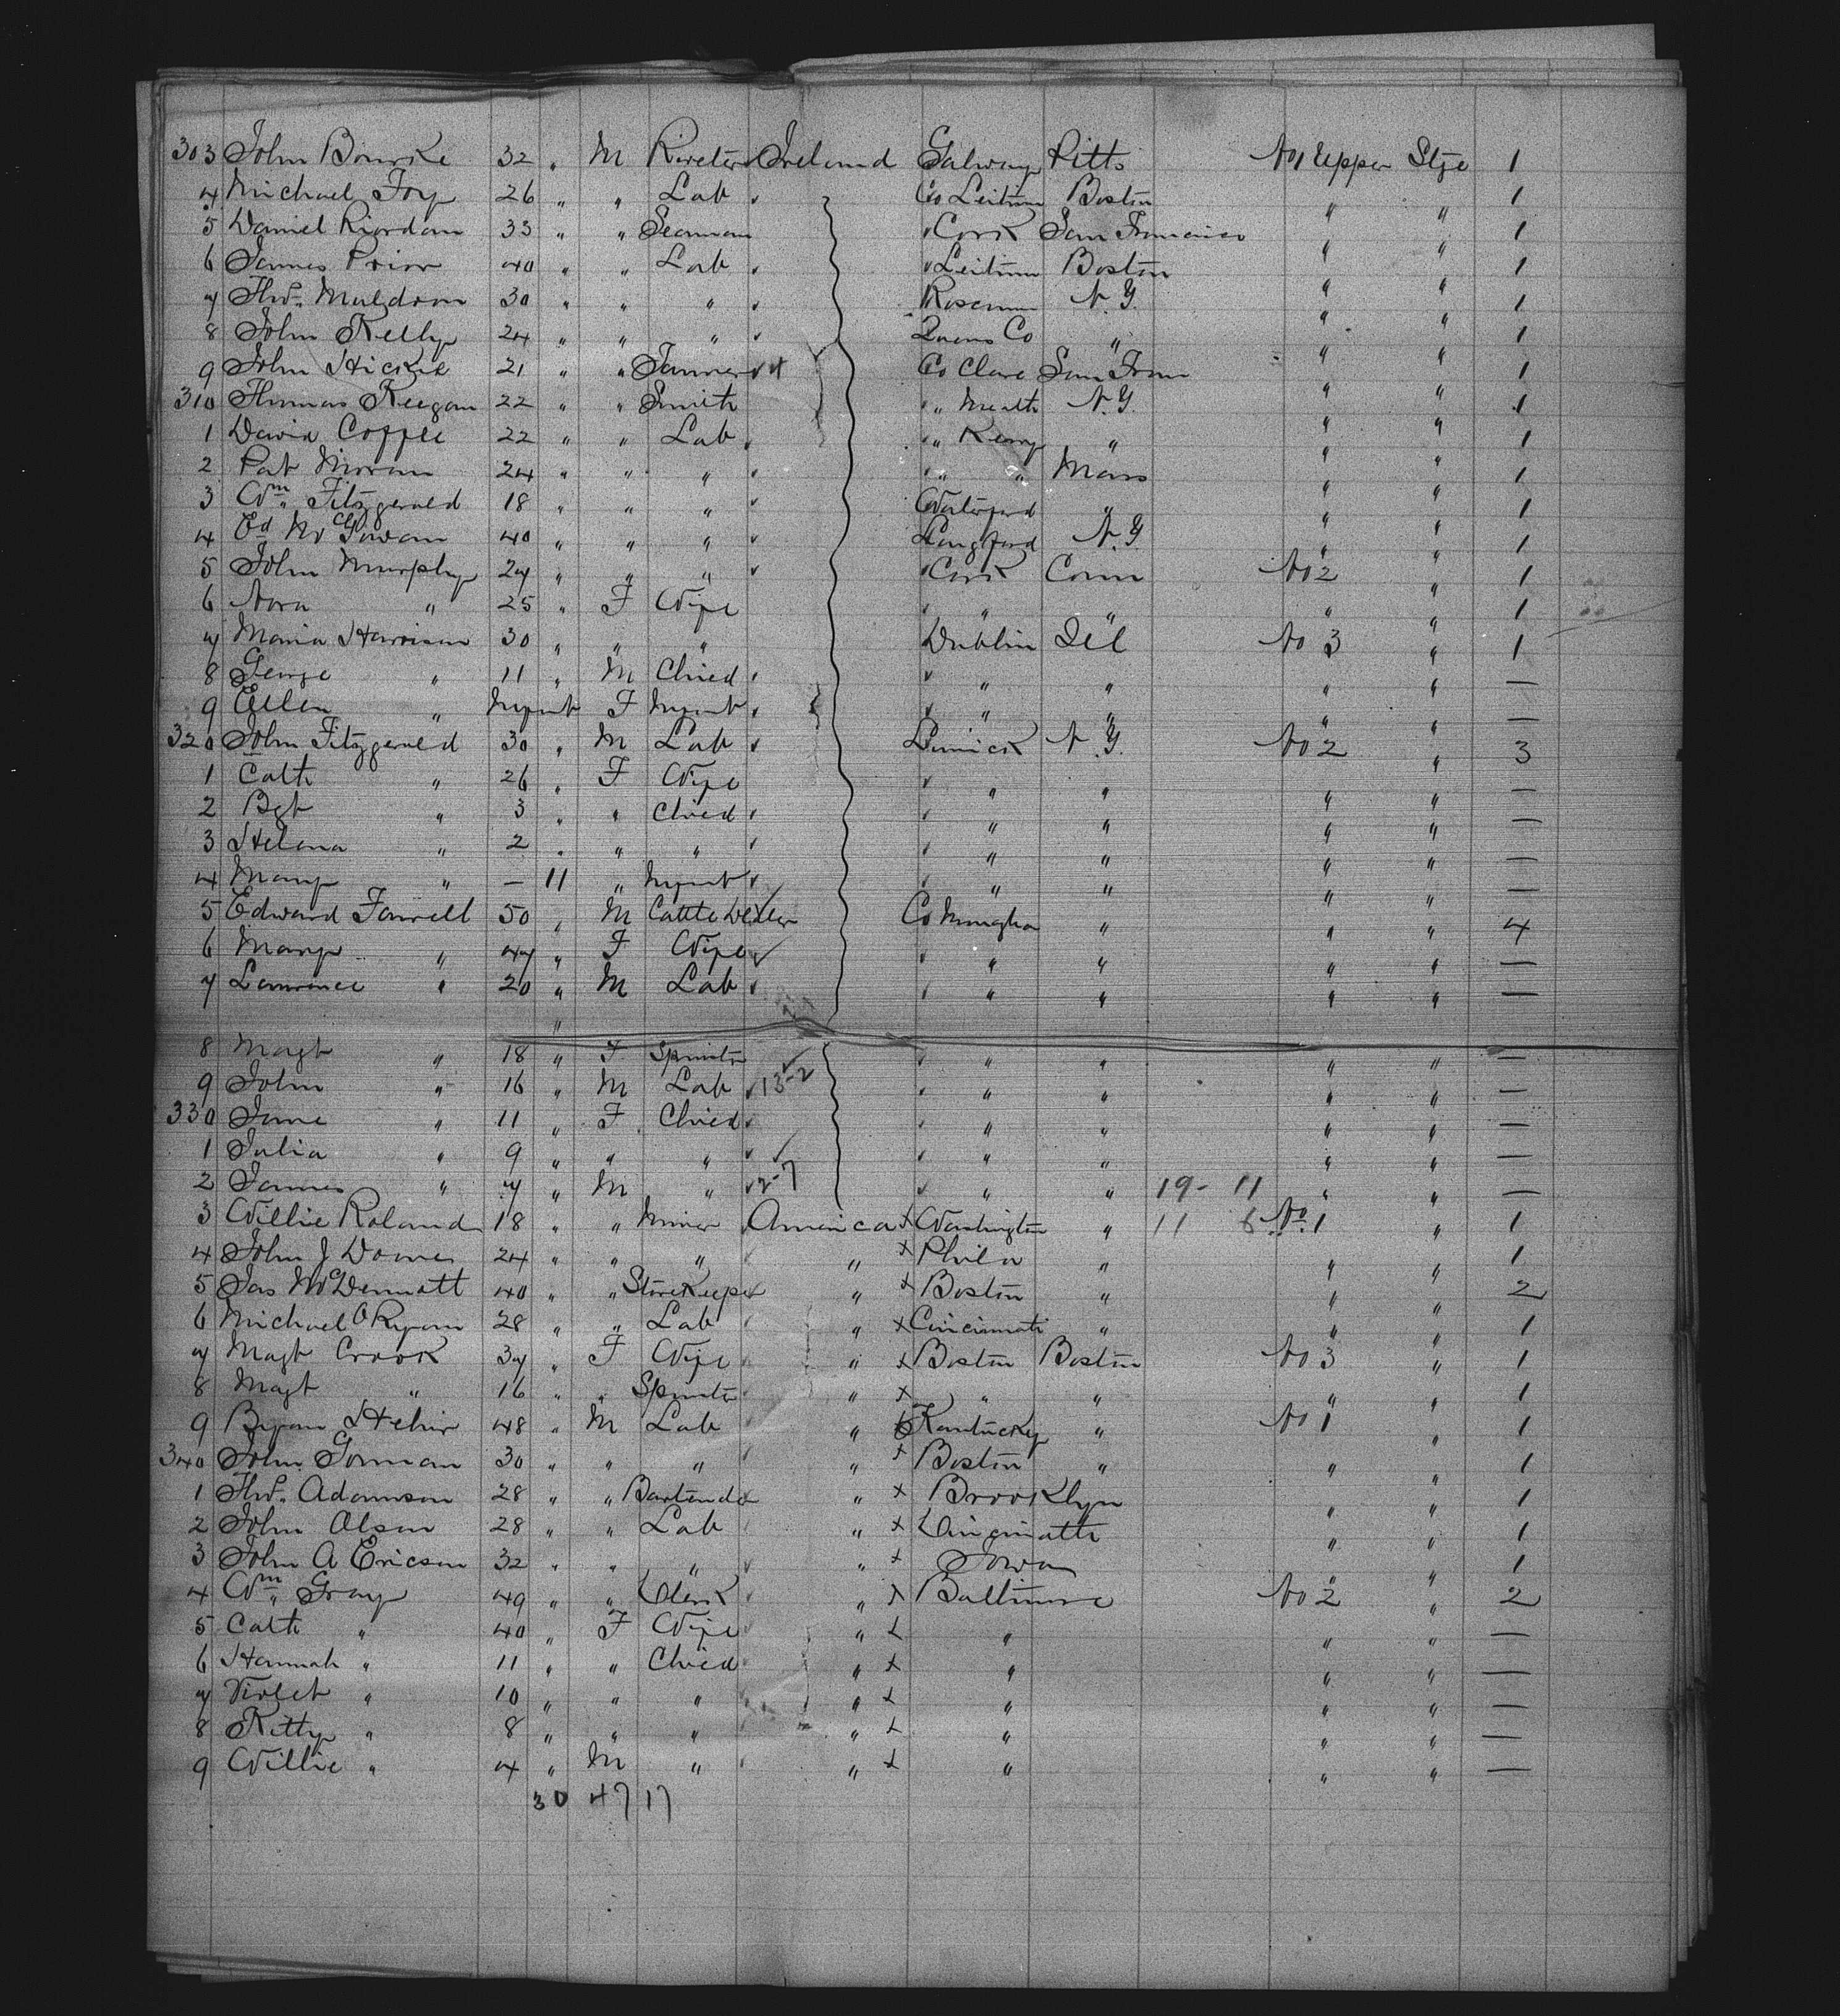 303 John Bourke 32 " M Riveter Ireland Galway Pitts No 1 Upper Stge 1
4 Michael Foy 26 " " Lab Co Leitrim Boston " " 1
5 Daniel Riordan 33 " " Seaman " Cork San Francisco " " 1
6 James Prior 40 " " Lab " Leitrim Boston " " 1
7 Thos. Muldoon 30 " " " Roscmn N.Y. " " 1
8 John Kelly 24 " " " Queens Co " " " 1
9 John Hickie 21 " " Farmer Co Clare San Fran " " 1
310 Thomas Keegan 22 " " Smith " Meath N.Y. " " 1
1 David Coffee 22 " " Lab " Kerry " " " 1
2 Pat Moran 24 " " " " " Mass " " 1
3 Wm. Fitzgerald 18 " " " Waterford " " " 1
4 Ed McGowan 40 " " " Longford N.Y. " " 1
5 John Murphy 27 " " " Cork Conn No 2 " 1
6 Nora " 25 " F Wife " " " " 1
7 Maria Harrison 30 " " " Dublin Del No 3 " 1
8 George " 11 " M Child " " " " —
9 Ellen " Infant F Infant " " " " —
320 John Fitzgerald 30 " M Lab Limrick N.Y. No 2 " 3
1 Cath " 26 " F Wife " " " " —
2 Bgt " 3 " " Child " " " " —
3 Helena " 2 " " " " " " " —
4 Mary " — 11 " Infant " " " " —
5 Edward Farrell 50 " M Cattle Dealer Co Monaghan " " " 4
6 Mary " 47 " F Wife " " " " —
7 Lawrence " 20 " M Lab " " " " —
8 Magt " 18 " F Spinster " " " " —
9 John " 16 " M Lab 13-2 " " " " —
330 Jane " 11 " F Child " " " " —
1 Julia " 9 " " " " " " " —
2 James " 7 " M " 2-7 " " 19-11 " " —
3 Willie Roland 18 " " Miner America x Washington " 11 6 No. 1 " 1
4 John J Downes 24 " " " " x Phila " " " 1
5 Jas McDermott 40 " " StoreKeeper " x Boston " " " 2
6 Michael O Ryan 28 " " Lab " x Cincinnati " " " 1
7 Magt Crook 37 " F Wife " x Boston Boston No 3 " 1
8 Magt " 16 " " Spinster " x " " " " 1
9 Bryan Hehir 48 " M Lab " Kantucky " No 1 " 1
340 John Gorman 30 " " " " x Boston " " " 1
1 Thos. Adamson 28 " " Bartender " x Brooklyn " " 1
2 John Olson 28 " " Lab " x Cincinatti " " 1
3 John A Ericson 32 " " " " x Iowa " " 1
4 Wm. Gray 49 " " Clerk " x Baltimore No 2 " 2
5 Cath " 40 " F Wife " x " " " —
6 Hannah " 11 " " Child " x " " " —
7 Violet " 10 " " " " x " " " —
8 Kitty " 8 " " " " x " " " —
9 Willie " 4 " M " " x " " " —
30 47 17